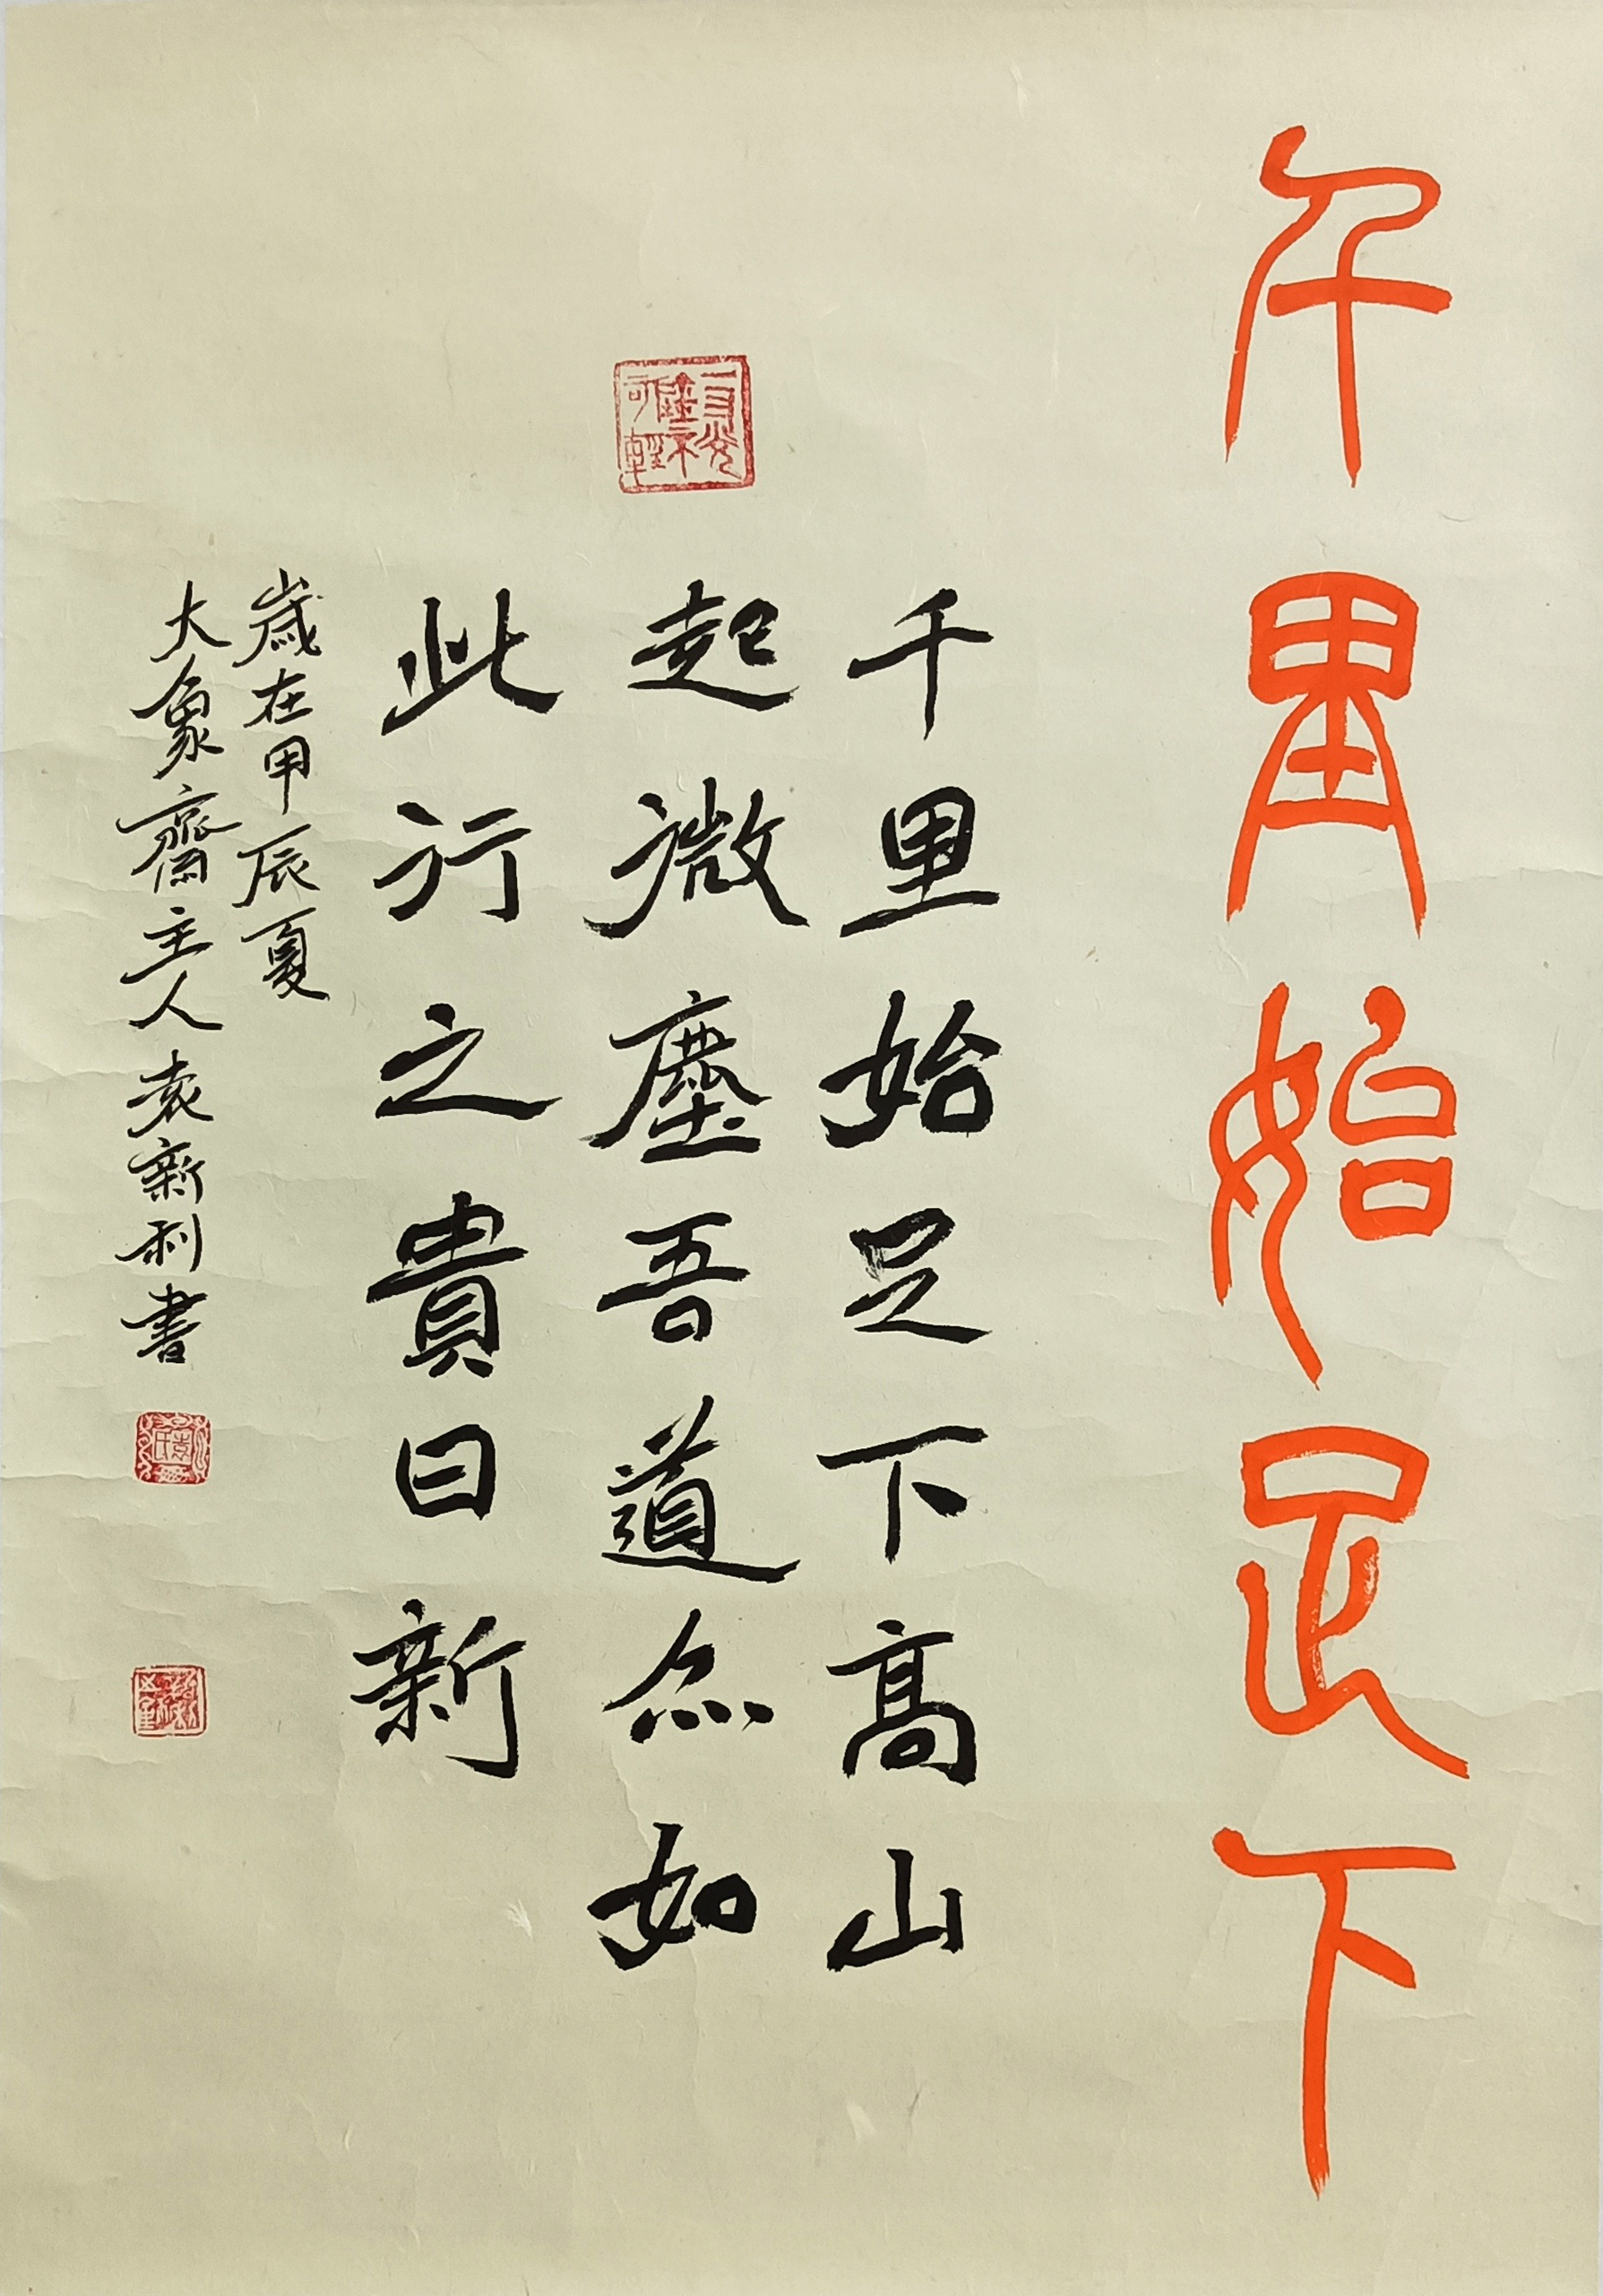 千里始足下
千里始足下高山
起微塵吾道亦如
此行之貴日新
歲在甲辰夏
大象齋主人袁新利書